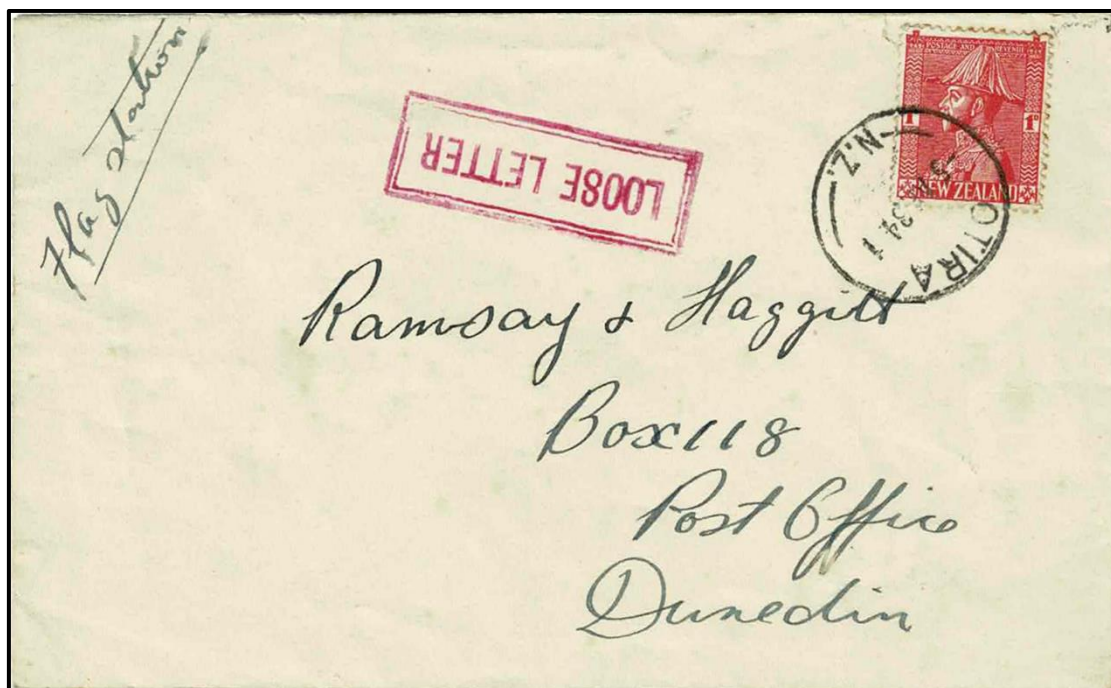 Flag station
LOOSE LETTER
POSTAGE AND REVENUE
1D 1D
NEW ZEALAND
OTIRA N.Z.
34 1
Ramsay & Haggitt
Box 118
Post Office
Dunedin